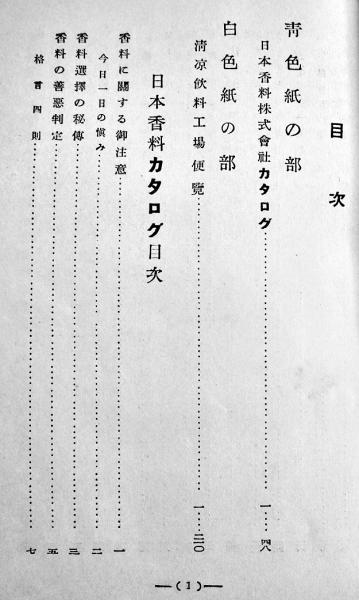 目次
靑色紙の部
日本香料株式會社カタログ……………一……四八
白色紙の部
淸凉飮料工場便覽……………一……二〇
日本香料カタログ目次
香料に關する御注意……………一
今日一日の愼み……………二
香料選擇の秘傳……………三
香料の善惡判定……………五
格言四則……………七
—(1)—